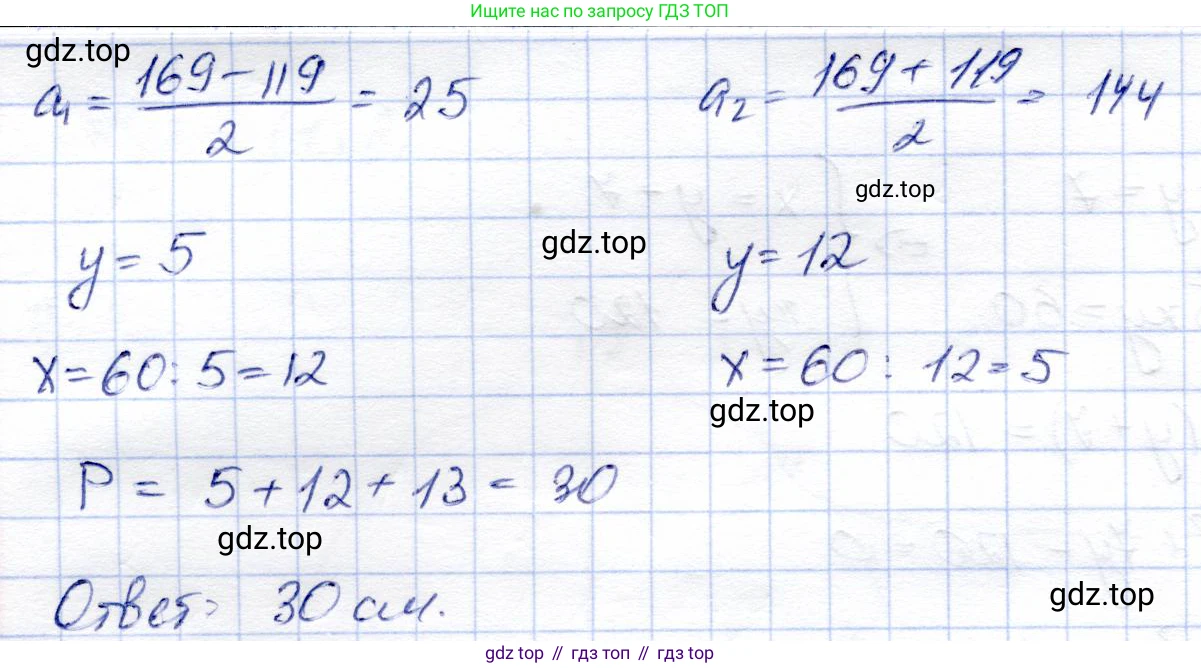 Ищите нас по запросу ГДЗ ТОП
gdz.top
a₁ = (169 - 119)/2 = 25
a₂ = (169 + 119)/2 = 144
gdz.top
gdz.top
y = 5
y = 12
x = 60 : 5 = 12
x = 60 : 12 = 5
gdz.top
P = 5 + 12 + 13 = 30
gdz.top
Ответ: 30 см.
gdz.top
gdz top // гдз топ // gdz top